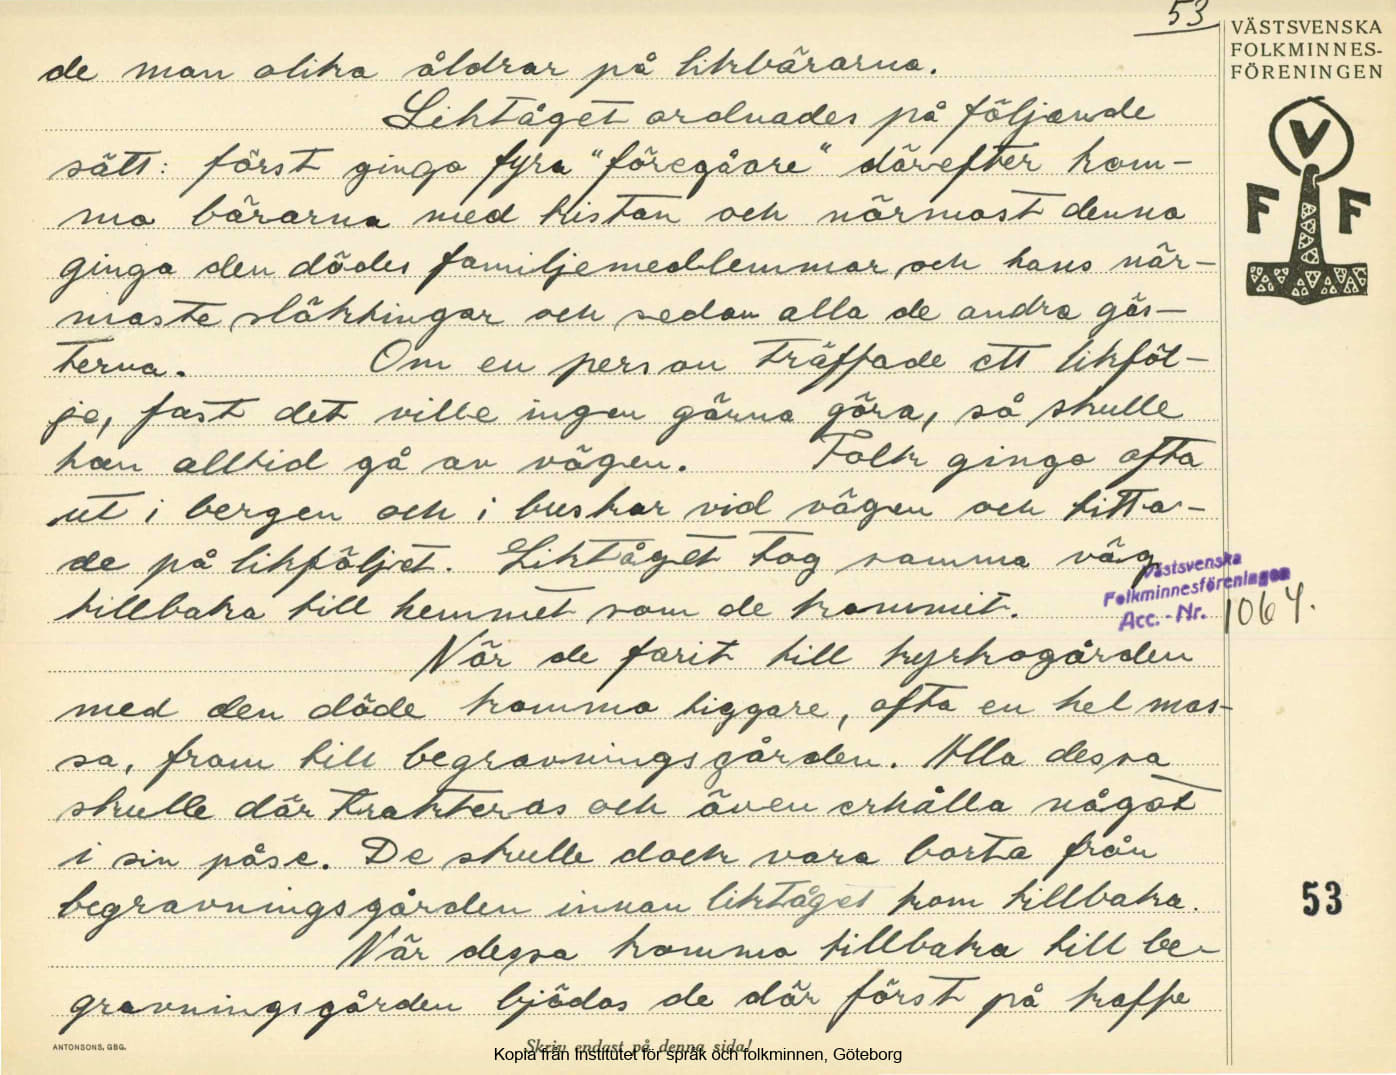 53
VÄSTSVENSKA
FOLKMINNES-
FÖRENINGEN
V
F F
de man olika åldrar på likbärarna.
Liktåget ordnades på följande
sätt: först gingo fyra "föregåare" därefter kom-
mo bärarna med kistan och närmast denna
gingo den dödes familjemedlemmar och hans när-
maste släktingar och sedan alla de andra gäs-
terna. Om en person träffade ett likföl-
je, fast det ville ingen gärna göra, så skulle
han alltid gå av vägen. Folk gingo ofta
ut i bergen och i buskar vid vägen och titta-
de på likföljet. Liktåget tog samma väg
tillbaka till hemmet som de kommit.
Västsvenska
Folkminnesföreningen
Acc.-Nr. 1064.
När de farit till kyrkogården
med den döde kommo tiggare, ofta en hel mas-
sa, fram till begravningsgården. Alla dessa
skulle där trakteras och även erhålla något
i sin påse. De skulle dock vara borta från
begravningsgården innan liktåget kom tillbaka.
53
När dessa kommo tillbaka till be-
gravningsgården bjödos de där först på kaffe
ANTONSONS, GBG.
Skriv endast på denna sida!
Kopia från Institutet för språk och folkminnen, Göteborg